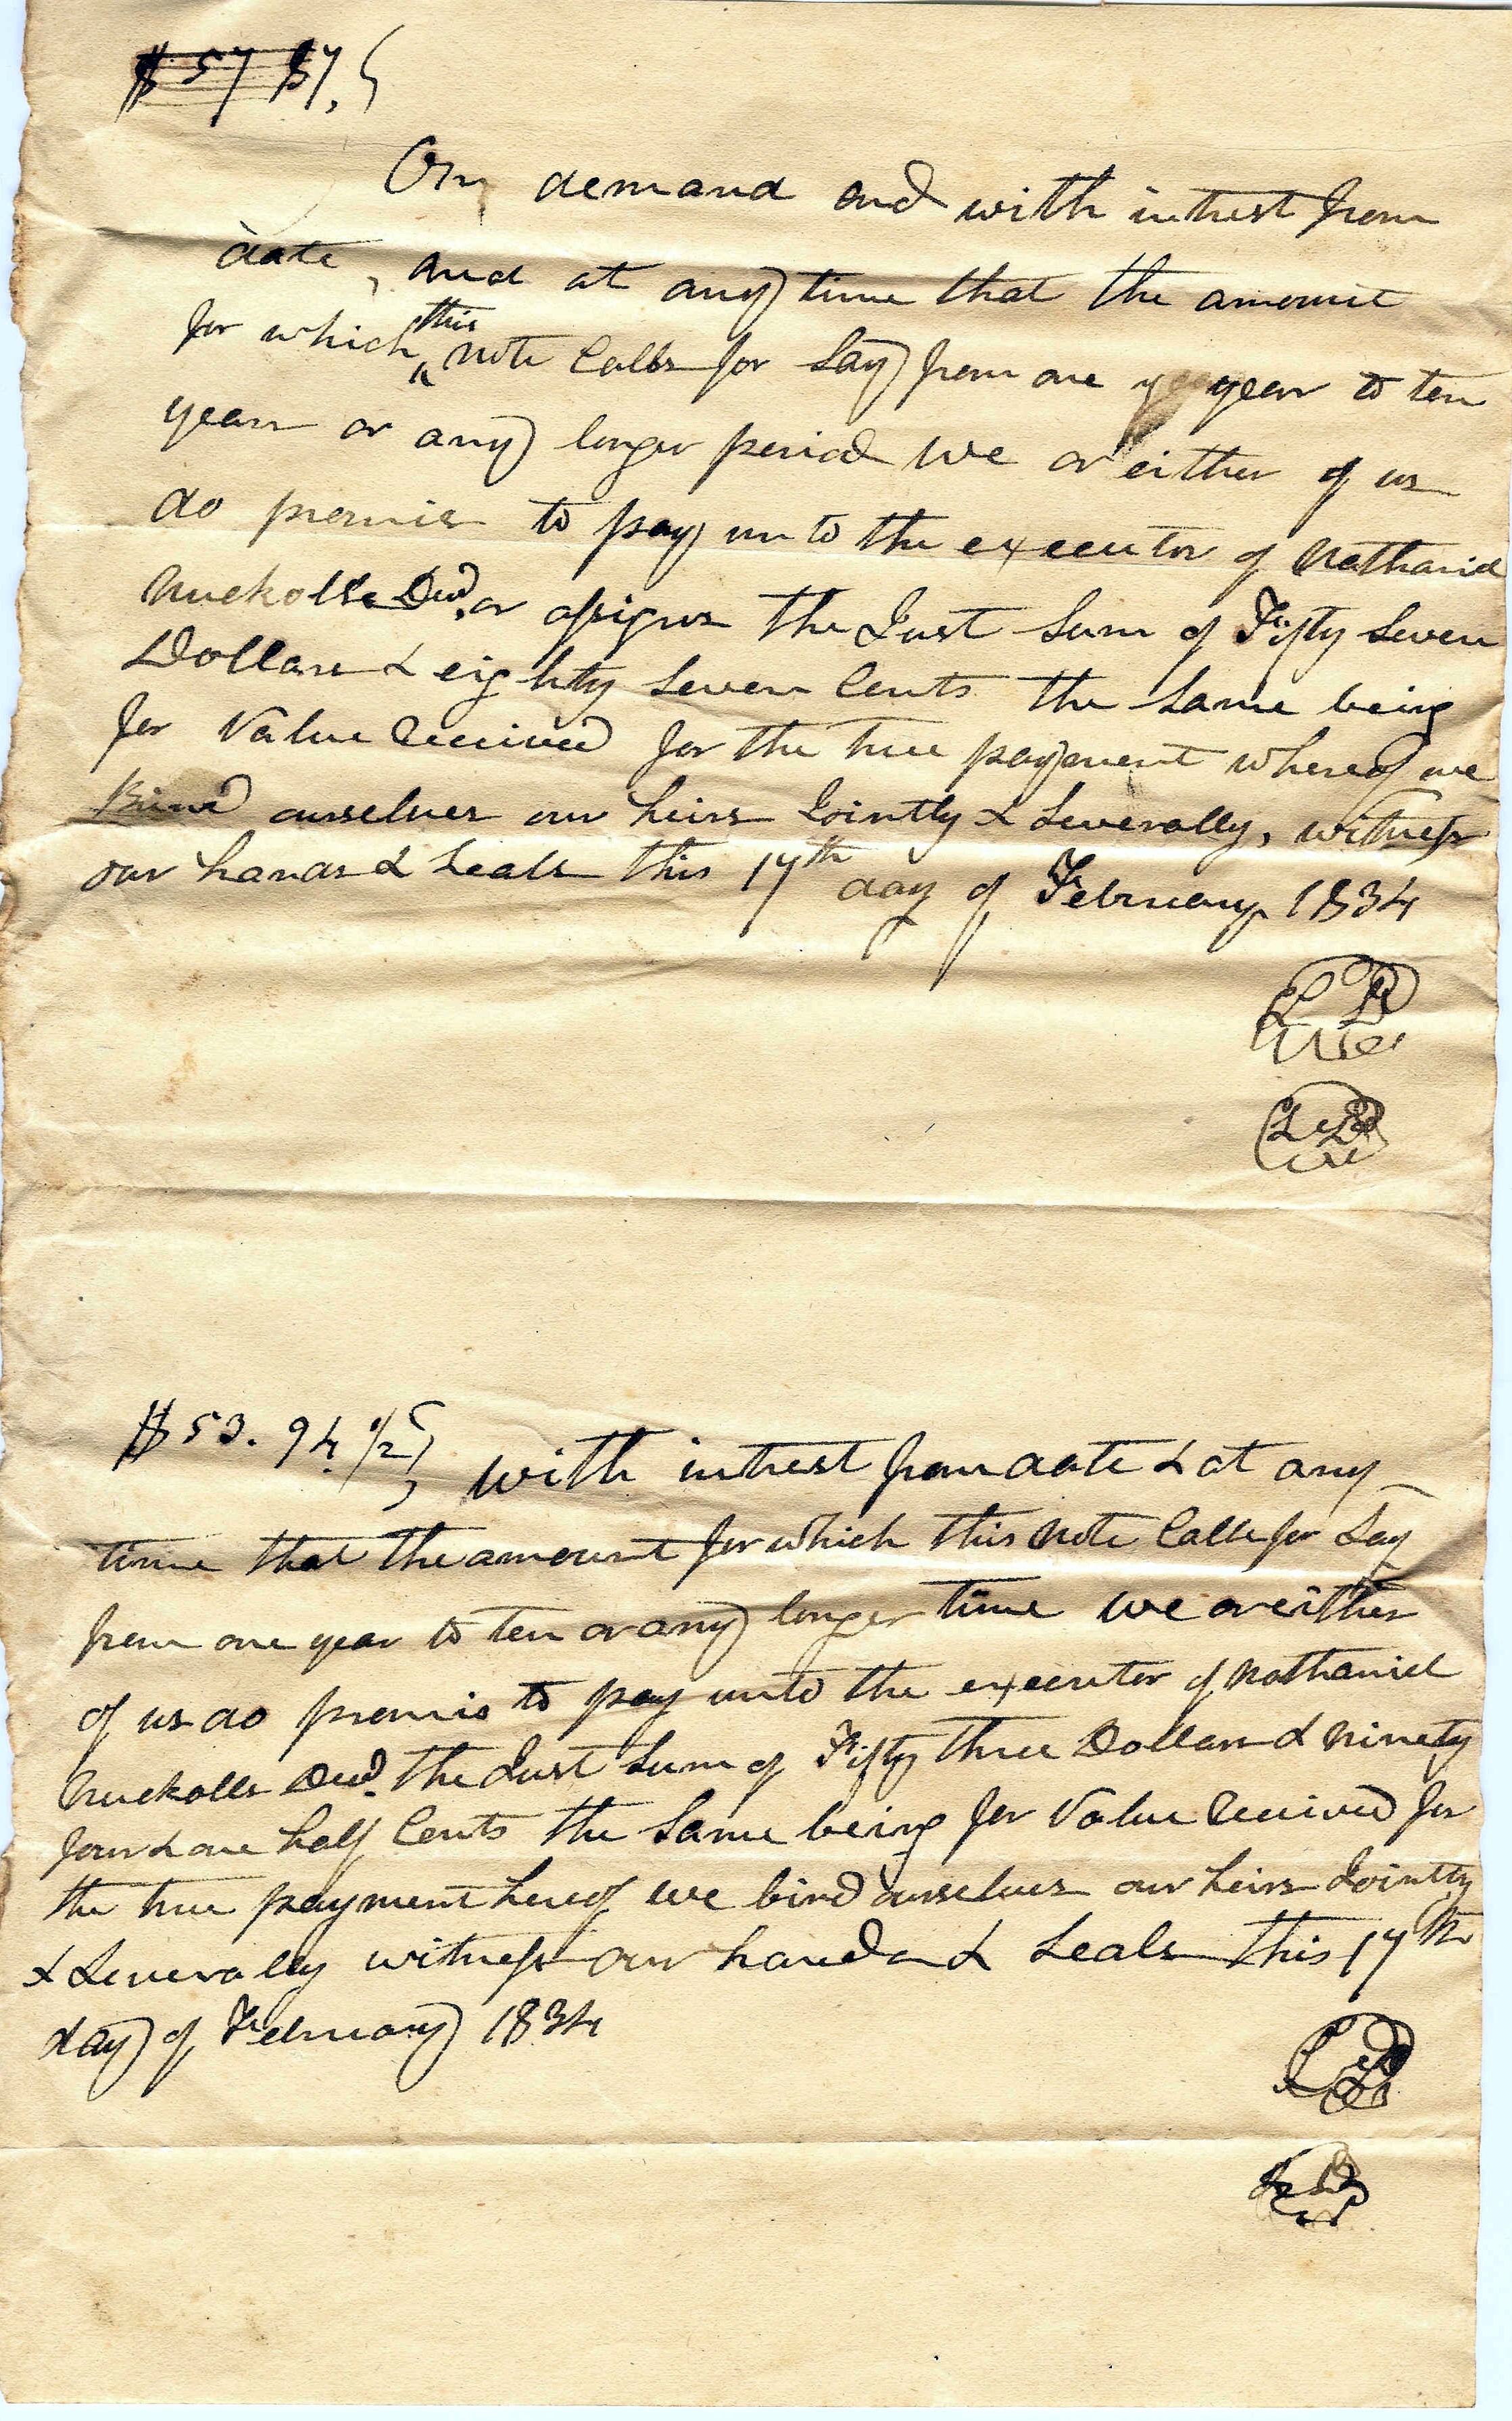 $57 87.
On demand and with intrest from
date, and at any time that the amount
for which this note Calls for Say from one year to ten
years or any longer period we or either of us
do promis to pay unto the executor of Nathaniel
Nuckolls Decd, or assigns the Just Sum of Fifty Seven
Dollars & eighty Seven Cents the Same being
for Value Received for the true payment whereof we
Bind ourselves our heirs Jointly & Severally, witness
our hands & Seals this 17th day of February 1834
$53. 94. 1/2
with intrest from date & at any
time that the amount for which this note Calls for Say
from one year to ten or any longer time we or either
of us do promis to pay unto the executor of Nathaniel
Nuckolls Decd. the Just Sum of Fifty three Dollars & ninety
four & one half Cents the Same being for Value Received for
the true payment hereof we bind ourselves our heirs Jointly
& Severally witness our hands & Seals this 17th
day of February 1834